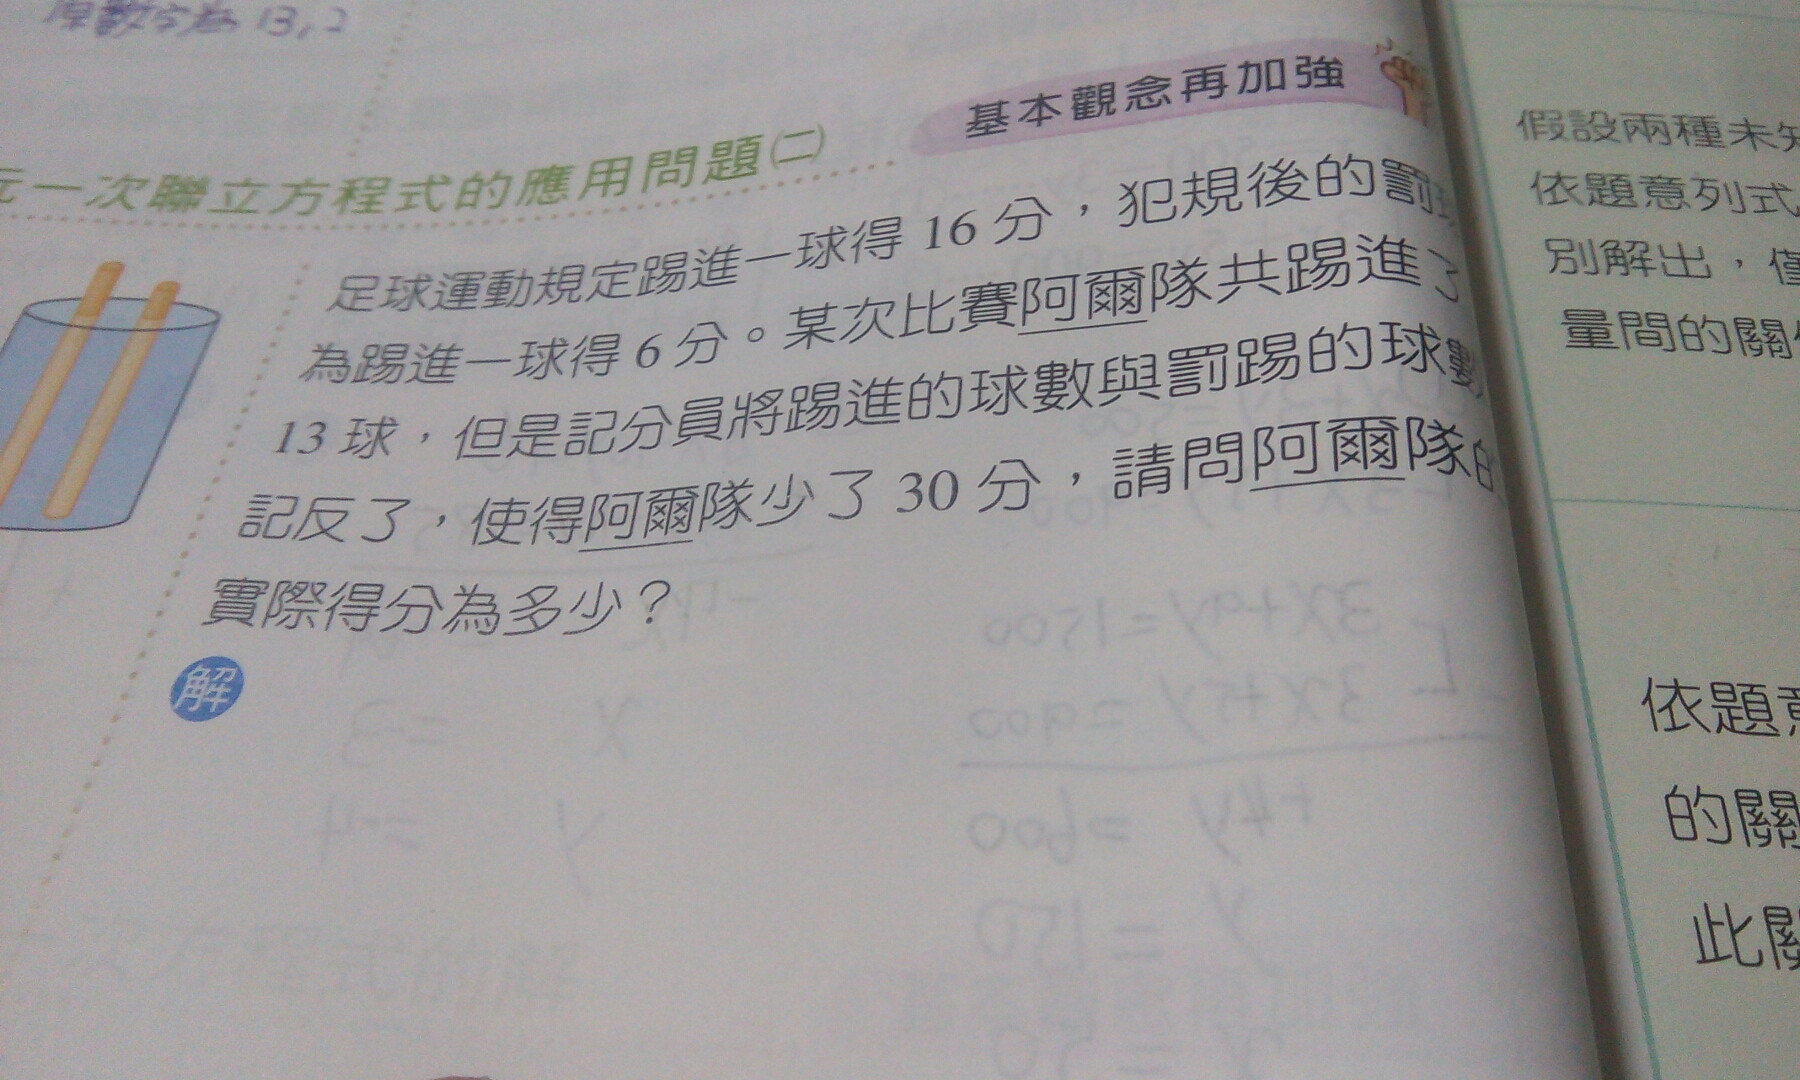 原數字為 13,2
基本觀念再加強
元一次聯立方程式的應用問題(二)
足球運動規定踢進一球得 16 分,犯規後的罰球
為踢進一球得 6 分。某次比賽阿爾隊共踢進了
13 球,但是記分員將踢進的球數與罰踢的球數
記反了,使得阿爾隊少了 30 分,請問阿爾隊的
實際得分為多少?
解
假設兩種未知
依題意列式
別解出,僅
量間的關係
依題意
的關
此關